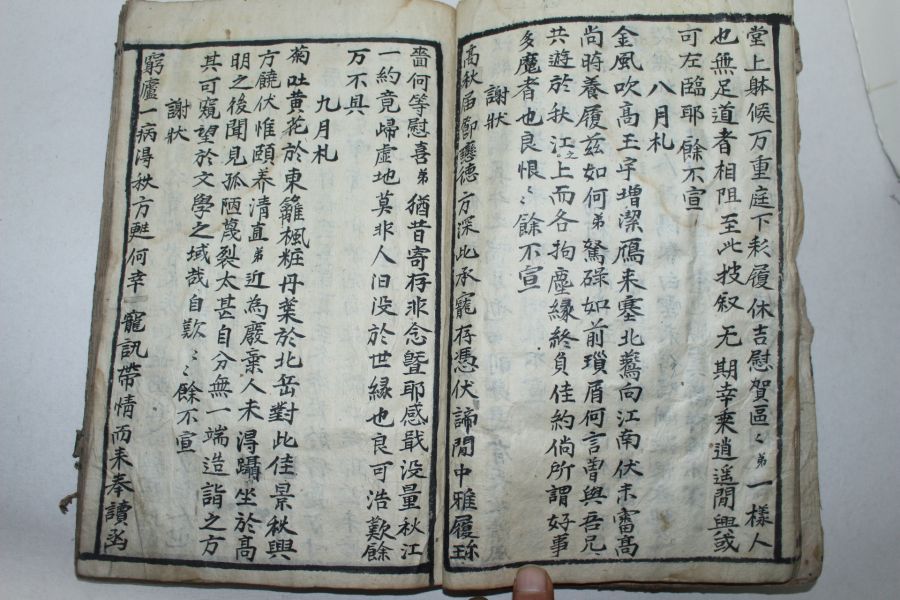 堂上躰候万重庭下彩履休吉慰賀區〻弟一樣人
也無足道者相阻至此披叙无期幸乘逍遥閒興或
可左臨耶餘不宣
八月札
金風吹高玉宇增潔鴈来塞北鷰向江南伏未審高
尚時養履玆如何弟駑碌如前瑣屑何言曽與吾兄
共遊於秋江之上而各拘塵緣終負佳約倘所謂好事
多魔者也良恨〻〻餘不宣
謝狀
高秋届節戀德方深此承寵存憑伏諦閒中雅履珎
嗇何等慰喜弟猶昔寄存非念曁耶感戢没量秋江
一約竟歸虛地莫非人汨没於世緣也良可浩歎餘
万不具
九月札
菊吐黄花於東籬楓粧丹葉於北岳對此佳景秋興
方饒伏惟頤养清直弟近為廢棄人未得躡坐於高
明之後聞見孤陋蔑裂太甚自分無一端造詣之方
其可窺望於文學之域哉自歎〻〻餘不宣
謝狀
窮廬一病得秋方甦何幸寵訊帶情而来奉讀函